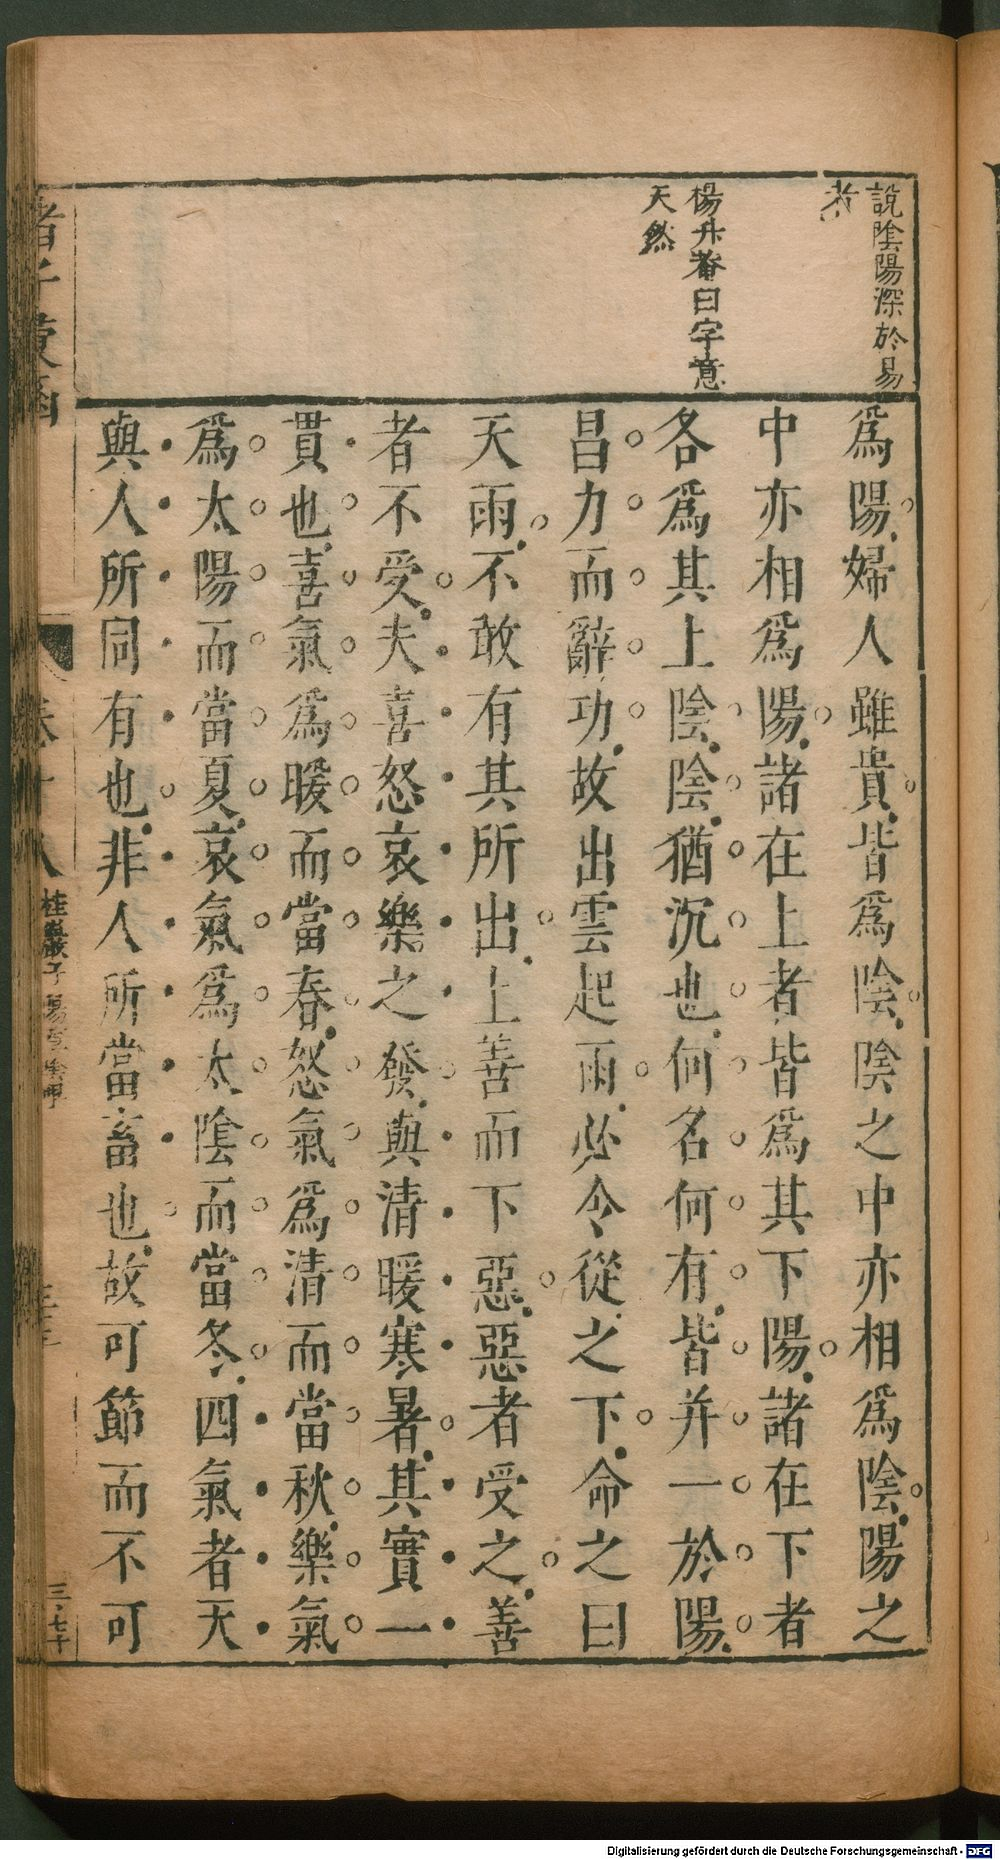 說陰陽深於易
者
楊升菴曰字意
天然
爲陽婦人雖貴皆爲陰陰之中亦相爲陰陽之
中亦相爲陽諸在上者皆爲其下陽諸在下者
各爲其上陰陰猶沉也何名何有皆并一於陽
昌力而辭功故出雲起雨必令從之下命之曰
天雨不敢有其所出上善而下惡惡者受之善
者不受夫喜怒哀樂之發與清暖寒暑其實一
貫也喜氣爲暖而當春怒氣爲清而當秋樂氣
爲太陽而當夏哀氣爲太陰而當冬四氣者天
與人所同有也非人所當畜也故可節而不可
諸子彙函
卷十八
桂巖子
三七十
Digitalisierung gefördert durch die Deutsche Forschungsgemeinschaft - DFG